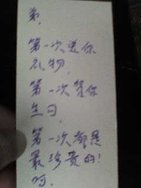 弟,
第一次送你
礼物,
第一次替你
生日,
第一次都是
最珍贵的!
呵,